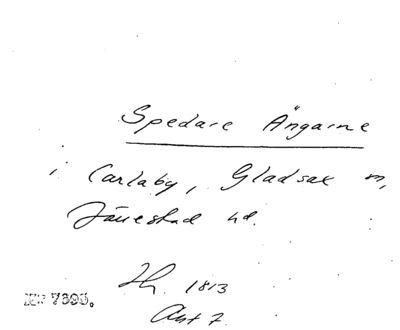 Spedare Ängarne
i Carlaby, Gladsax sn,
Järrestad hd.
Zh. 1813
Akt 7.
Nr 7393.